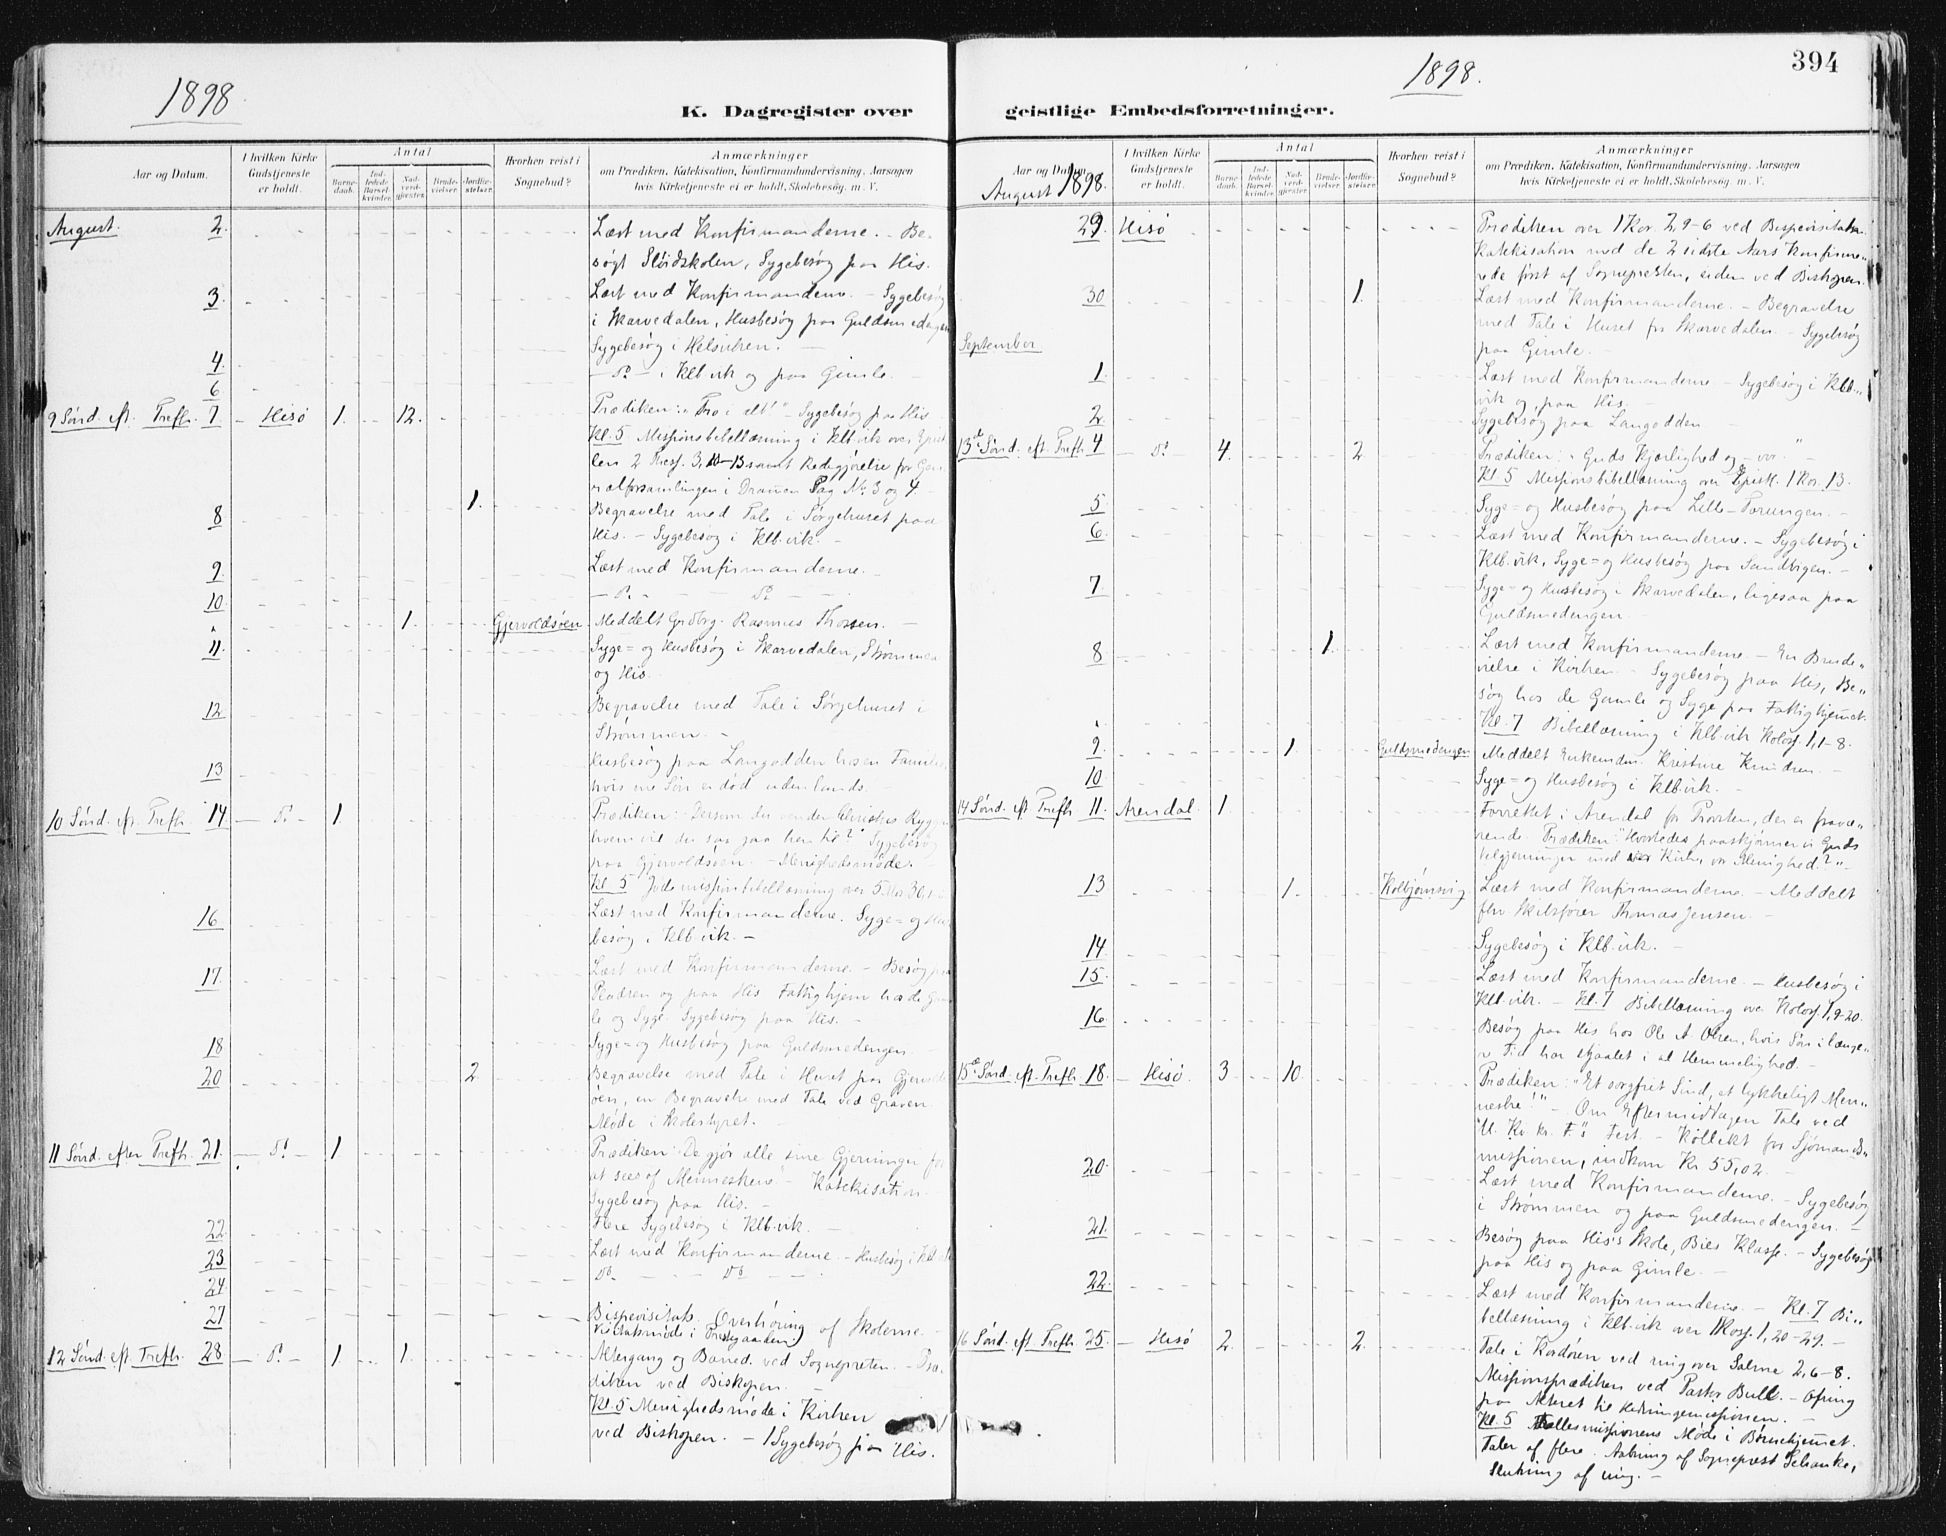 1898
K. Dagregister over
Aar og Datum.
I hvilken Kirke Gudstjeneste er holdt.
Antal
Barnedaab.
Indledede Barselkvinder.
Nadverdgjæster.
Brudevielser.
Jordfæstelser.
Hvorhen reist i Sognebud?
Anmærkninger
om Prædiken, Katekisation, Konfirmandundervisning, Aarsagen
hvis Kirketjeneste ei er holdt, Skolebesøg m. V.
August. 2. Læst med Konfirmanderne. - Be-
søgt Sløidskolen, Sygebesøg paa His.
3. Læst med Konfirmanderne. - Sygebesøg
i Skarvedalen, Husbesøg paa Guldsmedengen
Sygebesøg i
4 - Do - i Klb.vik og paa Gimle.
6
9 Sønd. eft. Trefh. 7 - Hisø 1. 12. Prædiken: "Tro i alt!" - Sygebesøg paa His
Kl. 5 Missionsbibellæsning i Klb.vik over Epist-
len 2 Thess. 3, 10-13 samt Redegjørelse for Gen-
ralforsamlingen i Drammen Sag No 3 og 4.
8 1. Begravelse med Tale i Sørgehuset paa
His. - Sygebesøg i Klb.vik. -
9. Læst med Konfirmanderne. -
10. - Do - - Do - -
" 1. Gjervoldsøen Meddelt Grdbrg. Rasmus Thorsen. -
11. Syge= og Husbesøg i Skarvedalen, Strømmen
og His.
12 Begravelse med Tale i Sørgehuset i
Strømmen. -
13 Husbesøg paa Langodden hos en Familie,
hvis ene Søn er død udenlands. -
10 Sønd. eft. Trefh. 14 - Do - 1 Prædiken: Dersom du vender Christus Ryggen
hvem vil du saa gaa hen til? Sygebesøg
paa Gjervoldsøen. - Menighedsmøde. -
Kl. 5 Jødemissionsbibellæsning over 5 Mos. 30,
16 Læst med Konfirmanderne. Syge= og Hus-
besøg i Klb.vik. -
17. Læst med Konfirmanderne - Besøg paa
og paa His Fattighjem hos de Gam-
le og Syge. Sygebesøg paa His. -
18 Syge= og Husbesøg paa Guldsmedengen -
20 2 Begravelse med Tale i Huset paa Gjervolds-
øen, en Begravelse med Tale ved Graven.
Møde i Skolestyret. -
11 Sønd. efter Trefh. 21 - Do - 1 Prædiken: De gjør alle sine Gjerninger for
at sees af Menneskene - Katekisation -
Sygebesøg paa His. -
22. Flere Sygebesøg i Klb.vik. -
23 Læst med Konfirmanderne. - Husbesøg i Klb.vik
24. Do - - Do - -
27 Bispevisitats. Overhøring af Skolerne -
Visitatsmøde i Prestegaarden.
12 Sønd. eft. Trefh. 28 - Do - 1. 1. Altergang og Barned. ved Sogneprsten. - Præ-
diken ved Biskopen. -
Kl. 5 Menighedsmøde i Kirken
ved Biskopen. - 1 Sygebesøg paa His.
1898.
394
geistlige Embedsforretninger.
Aar og Datum.
I hvilken Kirke Gudstjeneste er holdt.
Antal
Barnedaab.
Indledede Barselkvinder.
Nadverdgjæster.
Brudevielser.
Jordfæstelser.
Hvorhen reist i Sognebud?
Anmærkninger
om Prædiken, Katekisation, Konfirmandundervisning, Aarsagen
hvis Kirketjeneste ei er holdt, Skolebesøg m. V.
August 1898.
29 Hisø Prædiken over 1 Kor. 2, 9-6 ved Bispevisitats.
Katekisation med de 2 sidste Aars Konfirme-
rede først af Sognepresten, siden ved Biskopen.
30 1. Læst med Konfirmanderne. - Begravelse
med Tale i Huset fra Skarvedalen - Sygebesøg
paa Gimle. -
September
1. Læst med Konfirmanderne - Sygebesøg i Klb.-
vik og paa His. -
2 Sygebesøg paa Langodden. -
13de Sønd. eft. Trefh. 4 - Do - 4. 2. Prædiken: "Guds Kjærlighed og - vor. - "
Kl. 5 Missionsbibellæsning over Epist. 1 Kor. 13.
5 Syge= og Husbesøg paa Lille-Torungen. -
6. Læst med Konfirmanderne. - Sygebesøg i
Klb.vik, Syge= og Husbesøg paa Sandvigen. -
7 Syge= og Husbesøg i Skarvedalen, ligesaa paa
Guldsmedengen. -
8 1. Læst med Konfirmanderne. - En Brude-
vielse i Kirken. - Sygebesøg paa His, Be-
søg hos de Gamle og Syge paa Fattighjemmet.
Kl. 7 Bibellæsning i Klb.vik Koloss. 1, 1-8.
9. 1. Guldsmedengen Meddelt Enkemdm. Kristine Knudsen. -
10 Syge= og Husbesøg i Klb.vik. -
14 Sønd. eft. Trefh. 11. Arendal 1. Forrettet i Arendal for Provsten, der er fravæ-
rende. Prædiken: "Hvorledes paaskjønner vi Guds
Velgjerninger mod vor Kirke, vor Menighed?"
13 1. Kolbjørnsvig Læst med Konfirmanderne. - Meddelt
fhv. Skibsfører Thomas Jensen. -
14 Sygebesøg i Klb.vik. -
15. Læst med Konfirmanderne. - Husbesøg i
Klb.vik. - Kl. 7 Bibellæsning over Koloss. 1, 9-20.
16. Besøg paa His hos Ole A. Olsen, hvis Søn i længe-
re Tid har stjaalet i al Hemmelighed. -
15de Sønd. eft. Trefh. 18. - Hisø. 3 10. Prædiken: "Et sorgfrit Sind, et lykkeligt Men-
neske!" - Om Eftermiddagen Tale ved
"U. Kv. Kr. F."s Fest. - Kollekt for Sjømands-
missionen, indkom Kr 55,02.
20. Læst med Konfirmanderne. - Sygebesøg
i Strømmen og paa Guldsmedengen. -
21. Besøg paa His's Skole, Bies Klasse. - Sygebesøg
paa His og paa Gimle. -
22. Læst med Konfirmanderne. - Kl. 7 Bi-
bellæsning i Klb.vik over Koloss. 1, 20-29. -
16 Sønd. eft. Trefh. 25. - Hisø 2. 2. Tale i Kordøren ved mig over Salme 2, 6-8.
Missionsprædiken ved Pastor Bull. - Ofring
paa Alteret til Hedningemissionen. -
Kl. 5 Fællesmissionens Møde i Børnehjemmet.
Taler af flere. Aabning af Sogneprest Schanke,
Slutning af mig. -